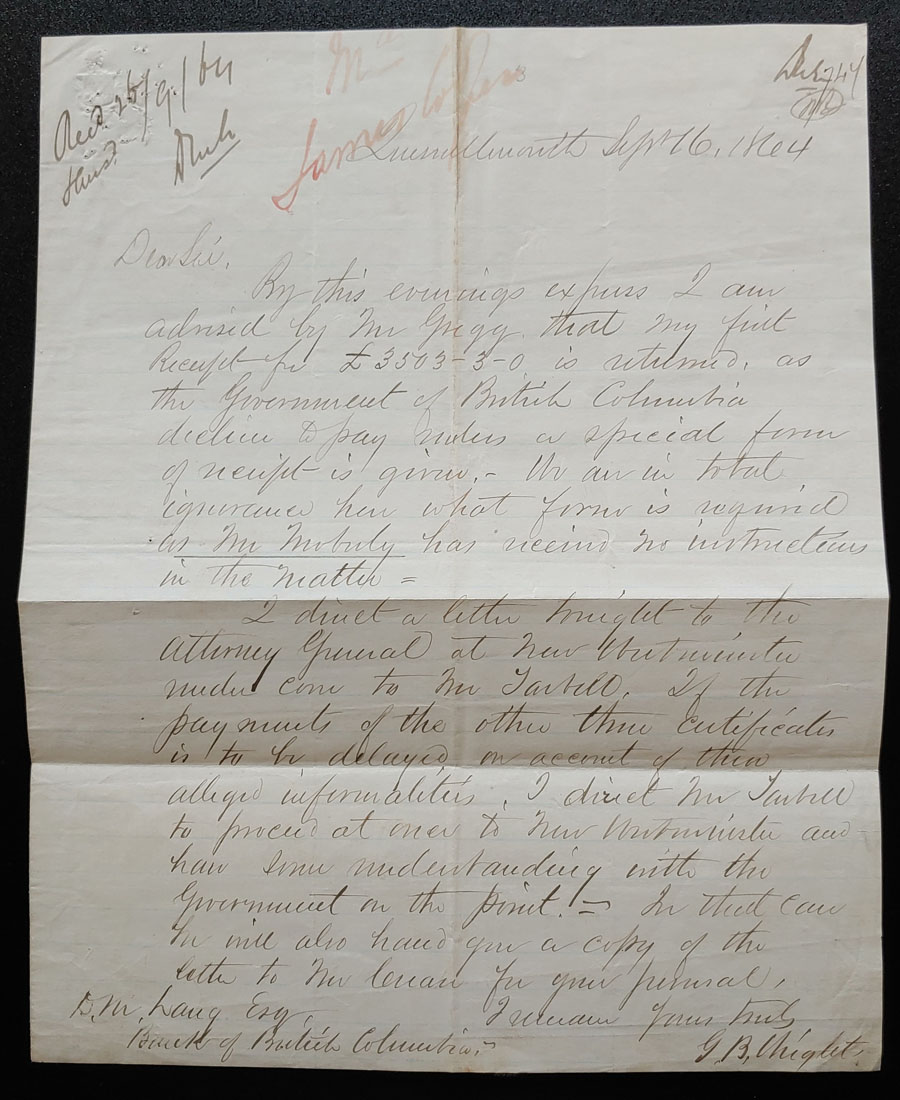 Recd. 25/9/64
Mr
James
Quesnellmouth Sept 16, 1864
Dear Sir,
By this evenings express I am
advised by Mr Gregg that my first
Receipt for £3503-3-0 is returned, as
the Government of British Columbia
decline to pay unless a special form
of receipt is given,- We are in total
ignorance here what form is required
as Mr Moberly has received no instructions
in the matter =
I direct a letter tonight to the
Attorney General at New Westminster
under cover to Mr Tarbell. If the
payments of the other three certificates
is to be delayed on account of these
alleged informalities, I direct Mr Tarbell
to proceed at once to New Westminster and
have some understanding with the
Government on the point. = In that case
he will also hand you a copy of the
letter to Mr Crease for your perusal,
I remain Yours truly
G. B. Wright.
D. M. Lang Esq,
Bank of British Columbia,-